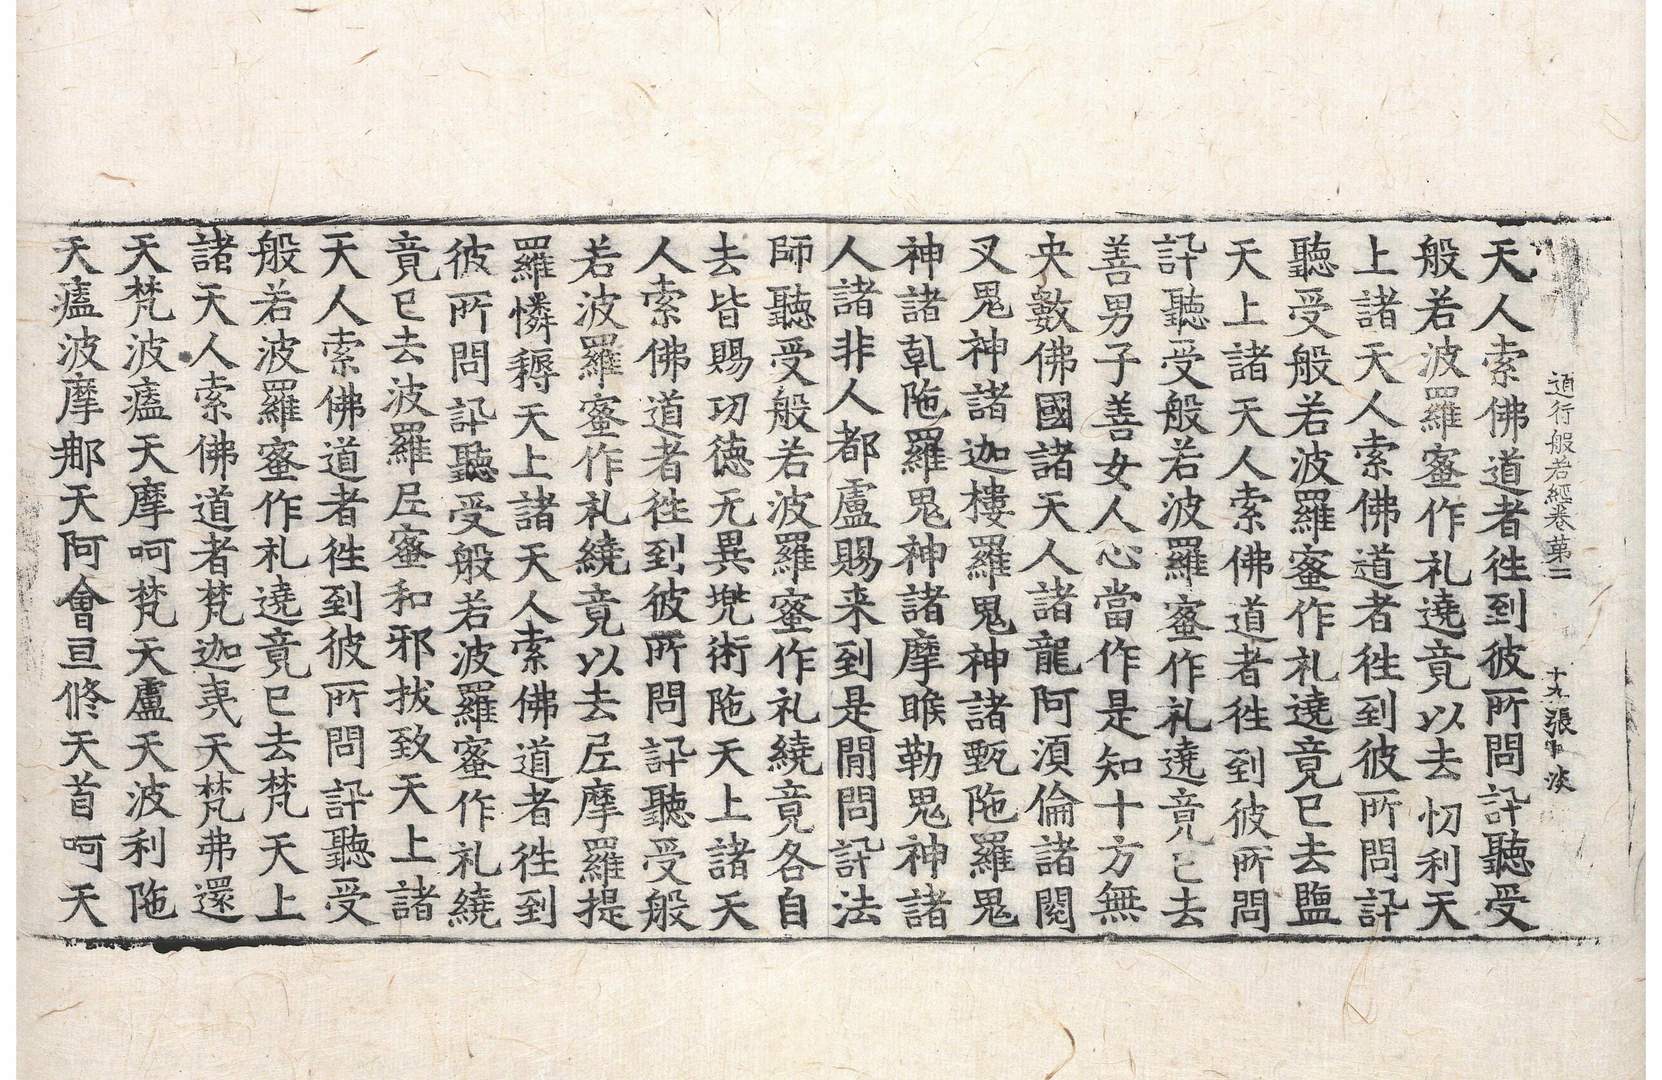 道行般若經卷第二 十九張 淡
天人索佛道者徃到彼所問訊聽受
般若波羅蜜作礼遶竟以去忉利天
上諸天人索佛道者徃到彼所問訊
聽受般若波羅蜜作礼遶竟已去鹽
天上諸天人索佛道者徃到彼所問
訊聽受般若波羅蜜作礼遶竟已去
善男子善女人心當作是知十方無
央數佛國諸天人諸龍阿須倫諸閱
叉鬼神諸迦樓羅鬼神諸甄陁羅鬼
神諸乹陁羅鬼神諸摩睺勒鬼神諸
人諸非人都盧賜来到是間問訊法
師聽受般若波羅蜜作礼繞竟各自
去皆賜功德无異兠術陁天上諸天
人索佛道者徃到彼所問訊聽受般
若波羅蜜作礼繞竟以去尼摩羅提
羅憐耨天上諸天人索佛道者徃到
彼所問訊聽受般若波羅蜜作礼繞
竟已去波羅尼蜜和邪拔致天上諸
天人索佛道者徃到彼所問訊聽受
般若波羅蜜作礼遶竟已去梵天上
諸天人索佛道者梵迦夷天梵弗還
天梵波㿭天摩呵梵天盧天波利陁
天㿭波摩那天阿會亘修天首呵天